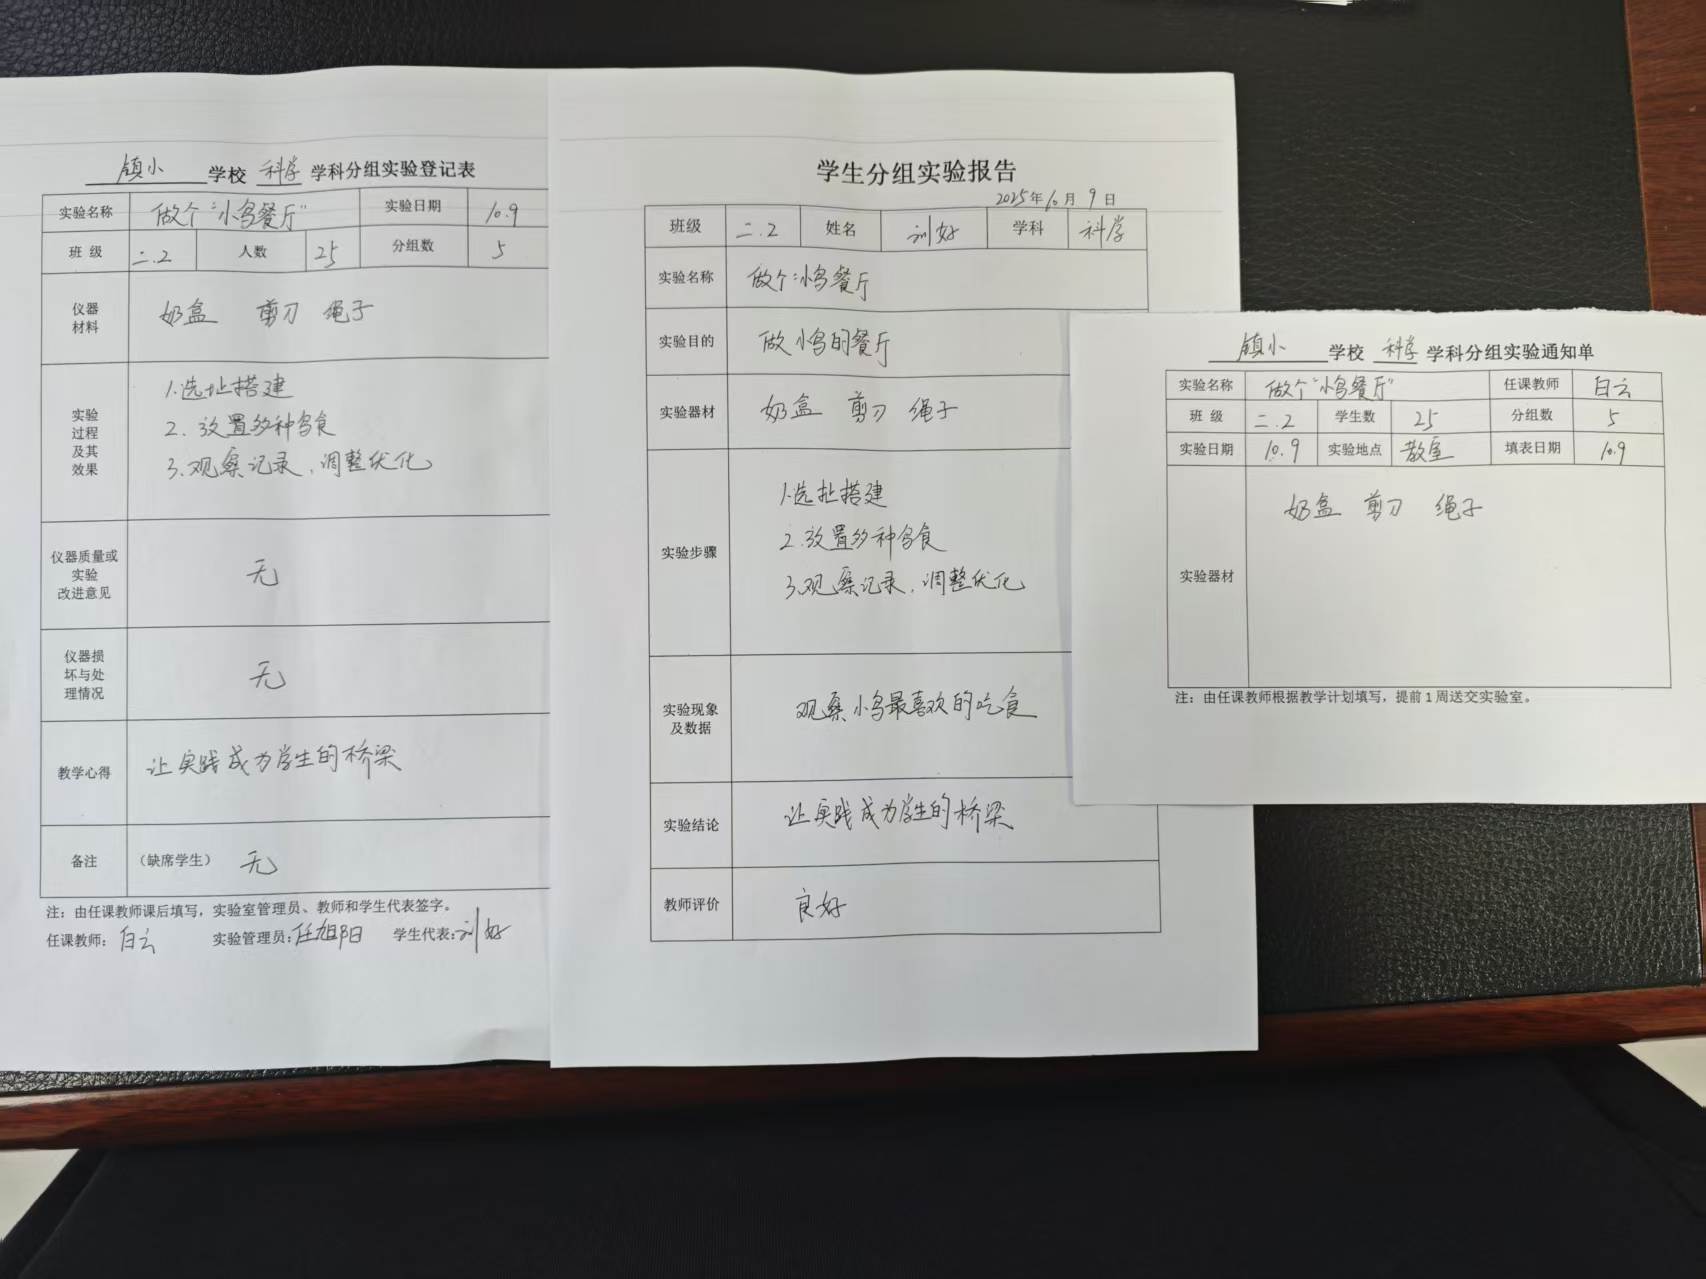 镇小 学校 科学 学科分组实验登记表
实验名称 做个“小鸟餐厅” 实验日期 10.9
班 级 二.2 人数 25 分组数 5
仪器
材料
奶盒 剪刀 绳子
实验
过程
及其
效果
1.选址搭建
2.放置多种鸟食
3.观察记录,调整优化
仪器质量或
实验
改进意见
无
仪器损
坏与处
理情况
无
教学心得 让实践成为学生的桥梁
备注 (缺席学生) 无
注:由任课教师课后填写,实验室管理员、教师和学生代表签字。
任课教师:白云 实验管理员:任旭阳 学生代表:刘好
学生分组实验报告
2025年10月9日
班级 二.2 姓名 刘好 学科 科学
实验名称 做个“小鸟餐厅
实验目的 做小鸟的餐厅
实验器材 奶盒 剪刀 绳子
实验步骤
1.选址搭建
2.放置多种鸟食
3.观察记录,调整优化
实验现象
及数据
观察小鸟最喜欢的吃食
实验结论 让实践成为学生的桥梁
教师评价 良好
镇小 学校 科学 学科分组实验通知单
实验名称 做个“小鸟餐厅” 任课教师 白云
班 级 二.2 学生数 25 分组数 5
实验日期 10.9 实验地点 教室 填表日期 10.9
实验器材 奶盒 剪刀 绳子
注:由任课教师根据教学计划填写,提前1周送交实验室。